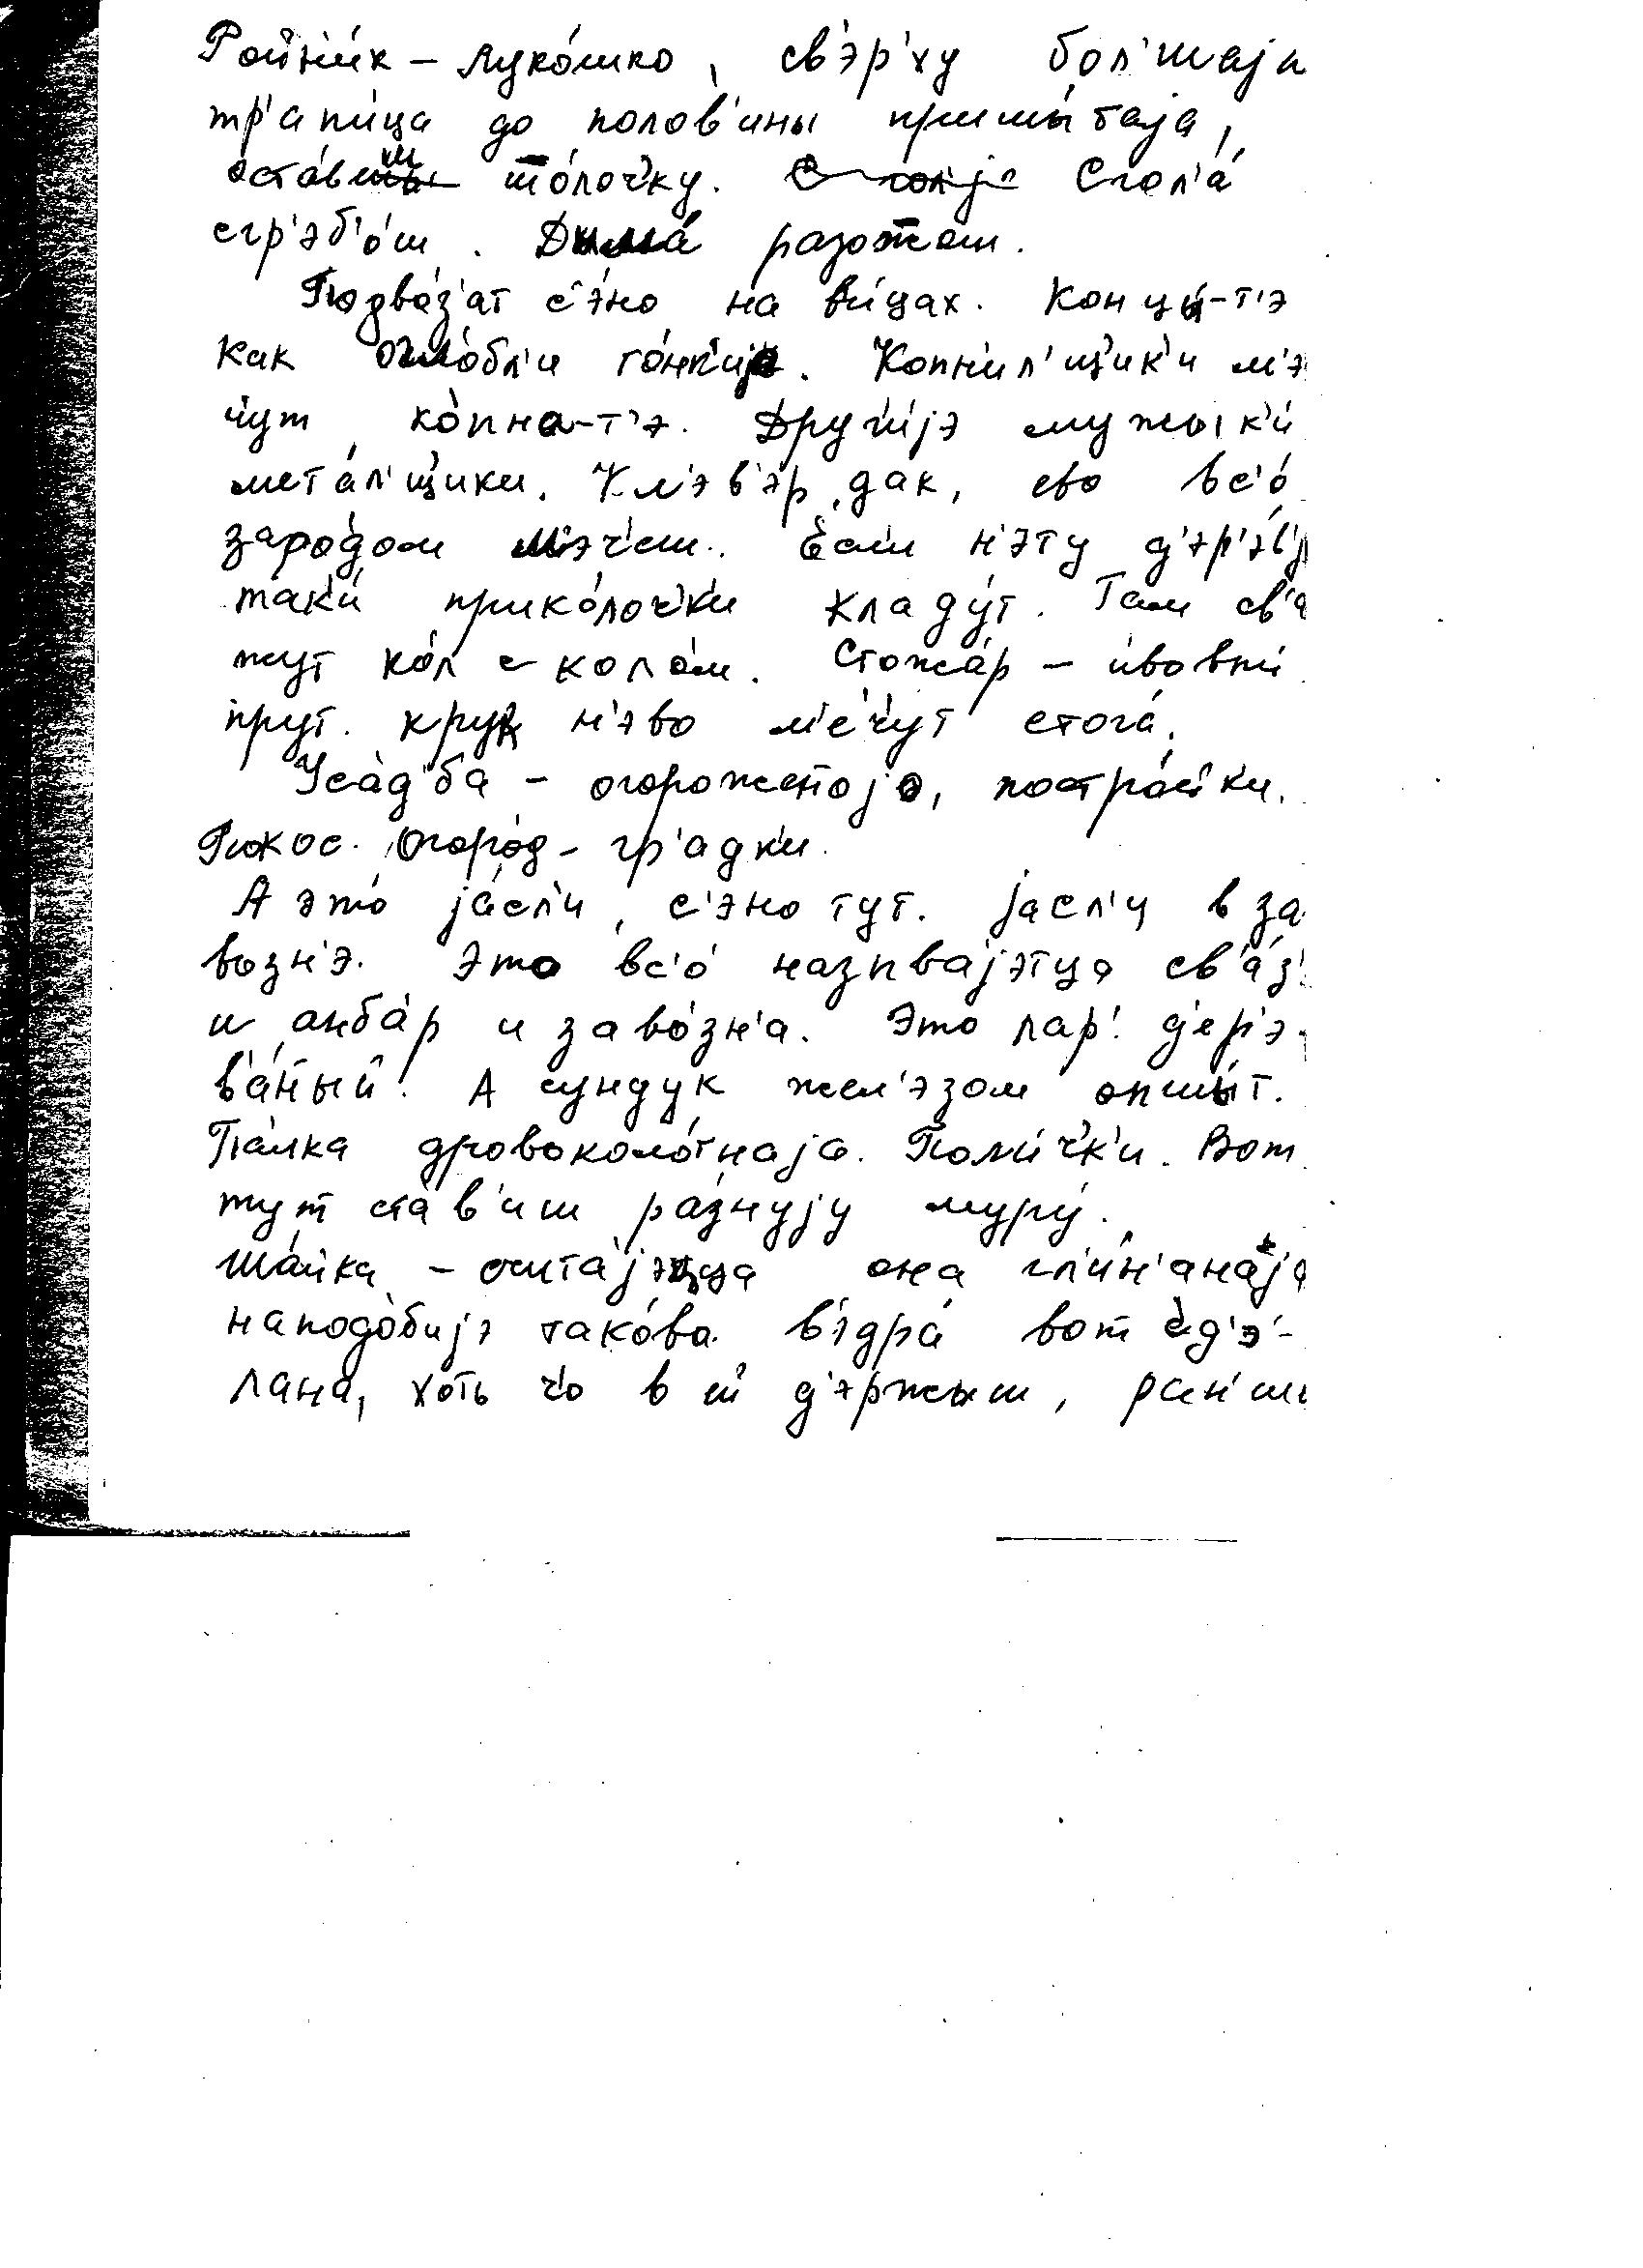 Ройн'и́к – луко́шко, св'э́р'ху бол'шаjа
тр'ап'и́ца до полов'ины пришы́таjа,
оста́виш што́лоч'ку. Стол'а́
сгр'эб'о́ш. Дыма́ разожош.
Подво́з'ат с'э́но на ви́цах. Концы́-т'э
как огло́бл'и то́нк'иjэ. Копн'и́л'щ'ик'и м'э
ч'ут ко́пна-т'э. Друг'и́jэ мужык'и́
мета́л'щ'ики. Кл'э́в'эр, дак, ево вс'о́
заро́дом м'эч'еш. Если н'эту д'эр'э́в'j
так'и́ прико́лоч'к'и кладу́т. Там св'а
жут ко́л с коло́м. Стожа́р – и́вовый
прут. круг н'эво м'е́ч'ут стога́.
Уса́д'ба – огороженоjэ, постро́йк'и.
Покос. Огоро́д – гр'адк'и.
А это́ jа́сл'и, с'эно тут. jасл'и в за
возн'э. Это вс'о́ назывájэтца св'áз'
и анба́р и заво́зн'а. Это лар'. д'ер'э-
в'а́ный. А сундук жел'эзом опшы́т.
Па́лка дровоколо́тнаjа. Поли́ч'к'и. Вот
тут ста́в'иш ра́знуjу муру́.
Ша́йка – считájэцца она гл'и́н'анаjа
наподо́биjэ тако́ва в'эдра́ вот сд'э́-
лана, хоть ч'о в й д'э́ржыш, ран'ш